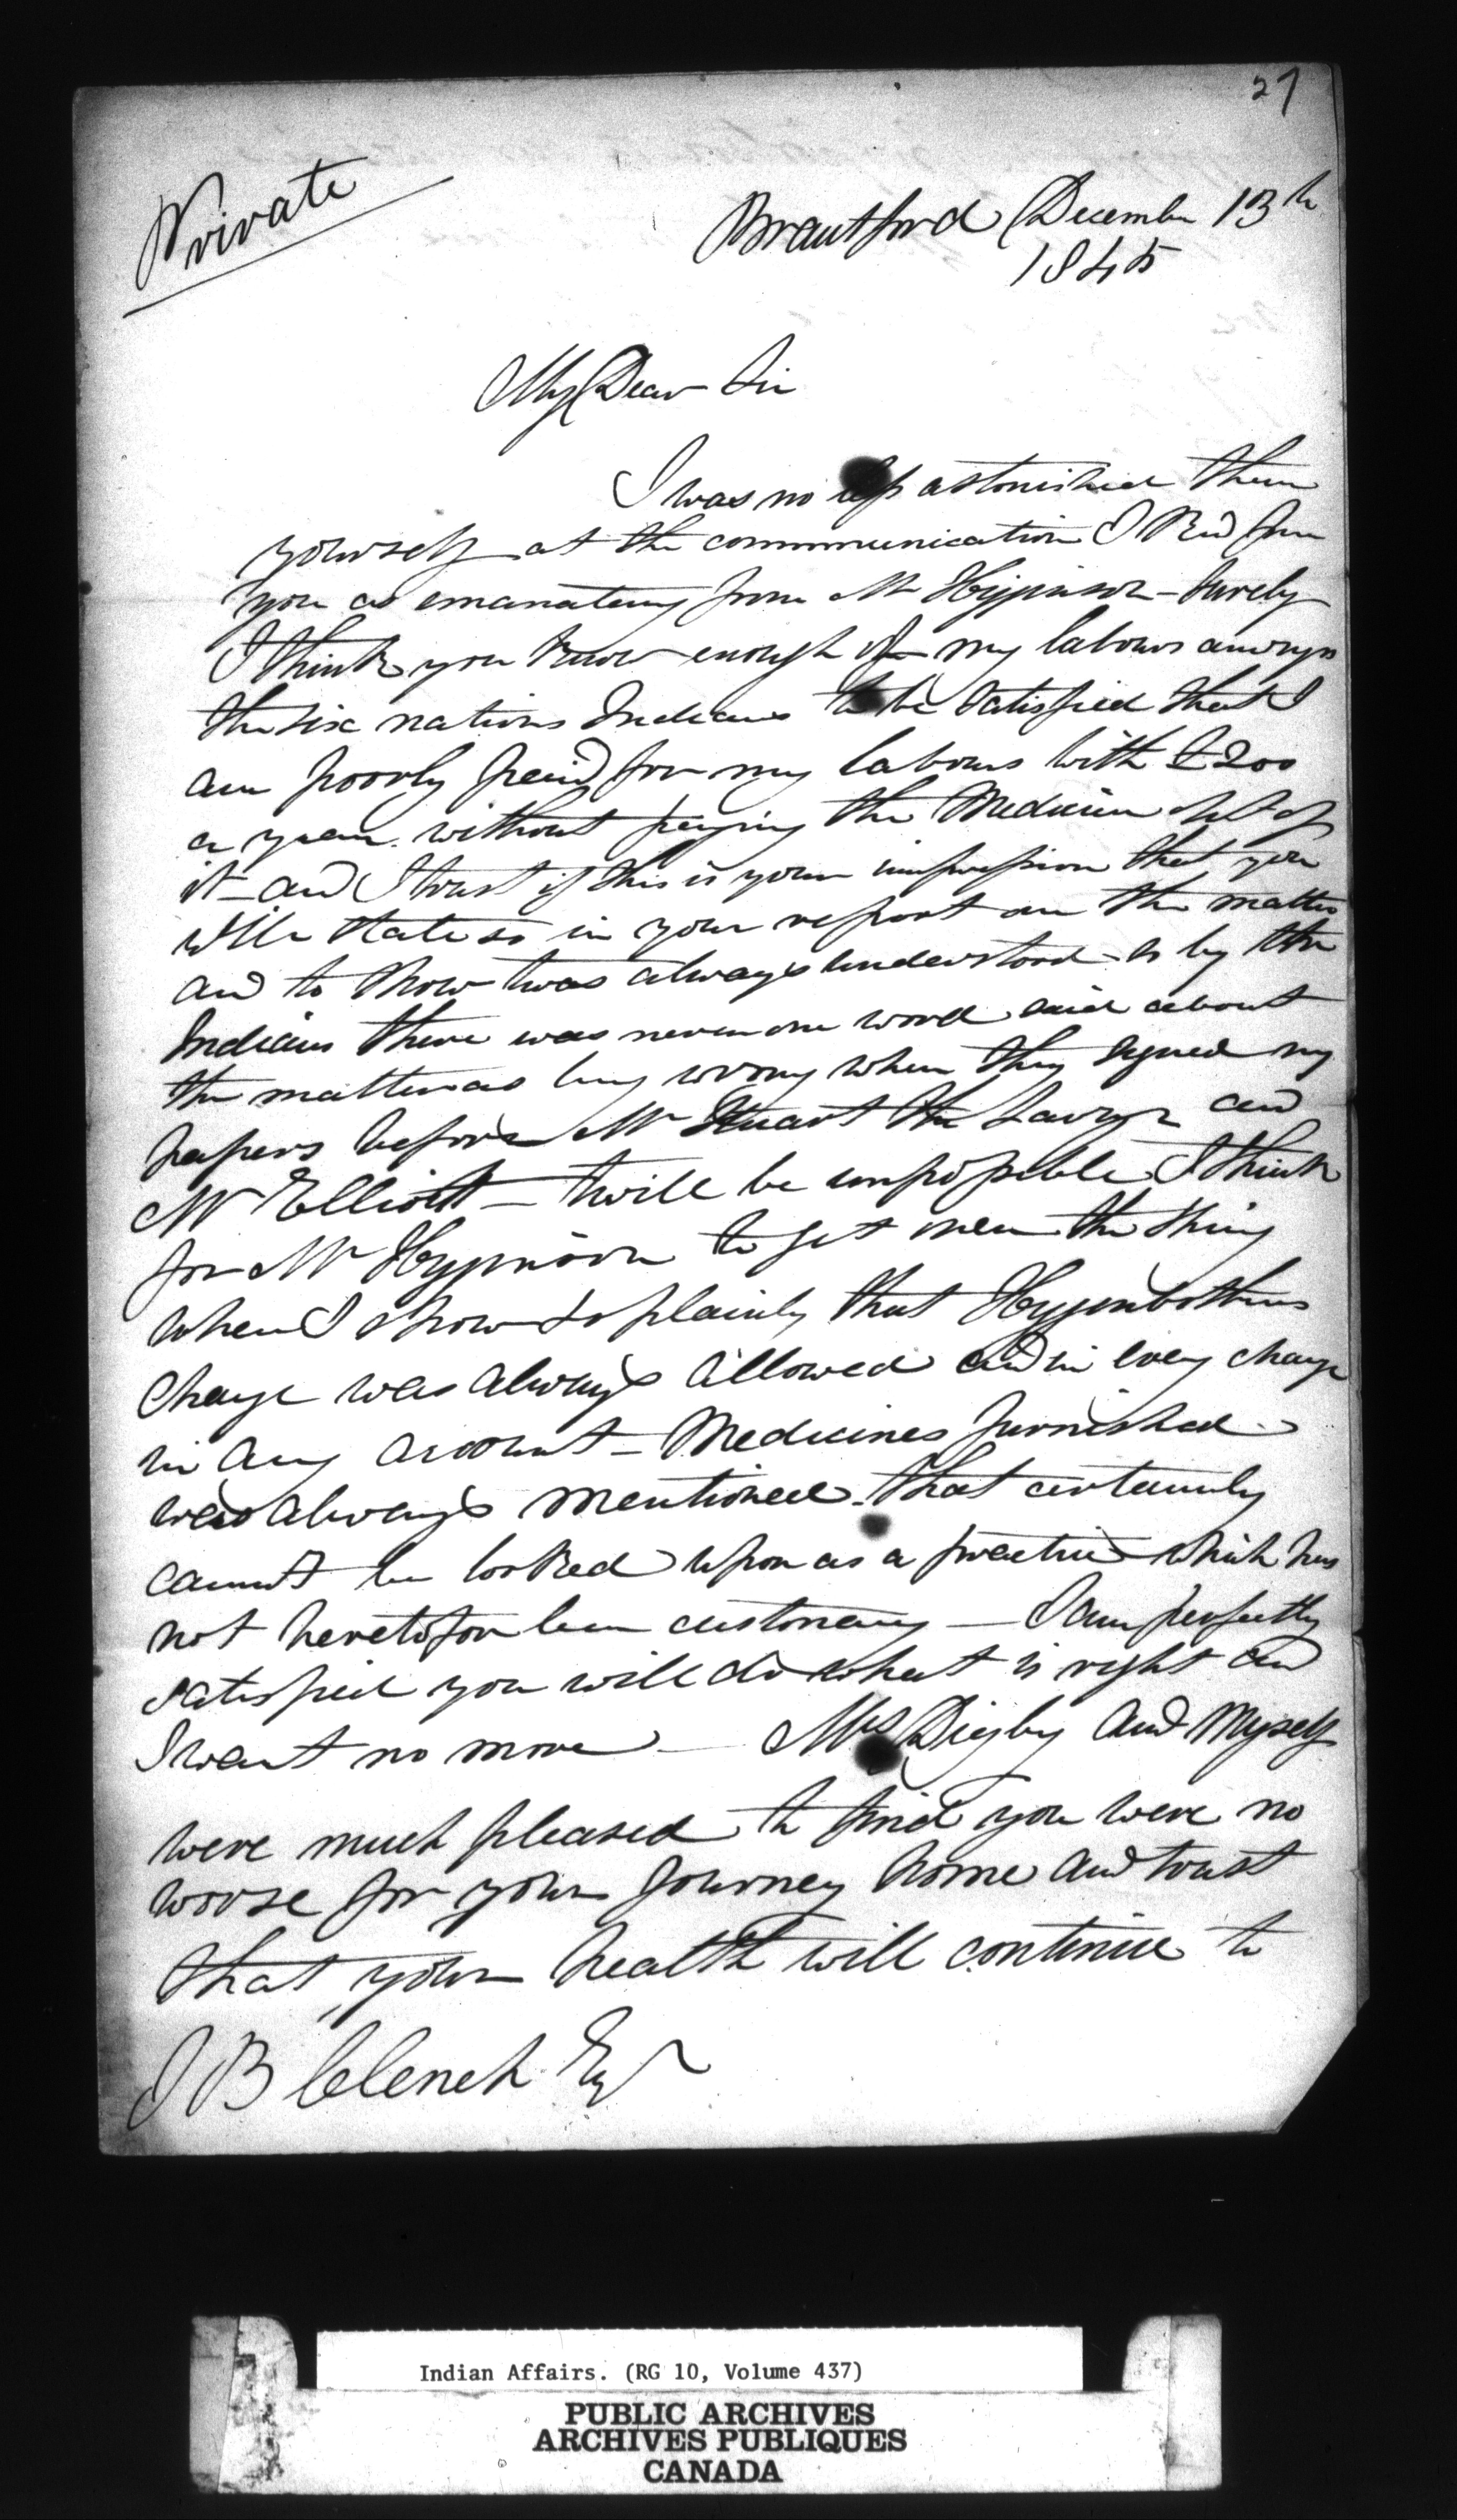 27
Private
Brantford December 13th
1845
My Dear Sir
I was no less astonished then
yourself at the communication I Recd from
you as emanating from Mr Higginson - Surely
I think you know enough of my labours amongs
the six nations Indians to be satisfied that I
am poorly paid for my labours with £200
a year without paying the Medicine out of
it - and I trust if this is your impression that you
will state so in your report on the matter
and to show twas always understood so by the
Indians there was never one word said about
the matter as being wrong when they signed my
papers before Mr Stuart the Lawyr and
Mr Elliott - twill be impossible I think
for Mr Higginson to get over the thing
when I show so plainly that Higginbothams
charge was always allowed and in every charge
in any account - Medicines furnished
was always mentioned - that certainly
cannot be looked upon as a practice which has
not heretofore been customary - I am perfectly
satisfied you will do what is right and
I want no more - Mrs Digby and Myself
were much pleased to find you were no
worse for your Journey home and trust
that your health will continue to
J B Clench Esqr
Indian Affairs. (RG 10, Volume 437)
PUBLIC ARCHIVES
ARCHIVES PUBLIQUES
CANADA